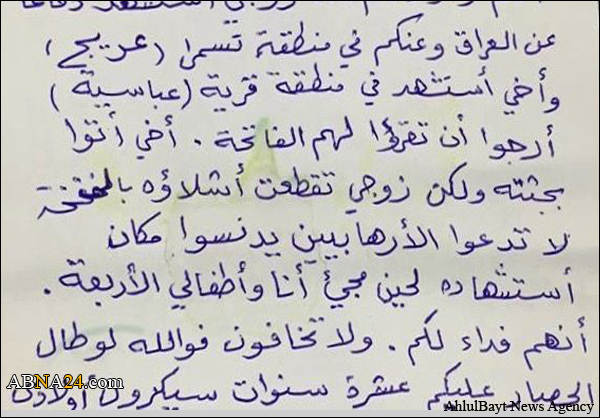 عن العراق وعنكم في منطقة تسما (عريج)
وأخي أستشهد في منطقة قرية (عباسية)
أرجوا أن تقرؤا لهم الفاتحة . أخي أتوا
بجثته ولكن زوجي تقطعت أشلاؤه
لا تدعوا الأرهابيين يدنسوا مكان
أستشهاده لحين مجيئ أنا وأطفالي الأربعة .
أنهم فداء لكم . ولا تخافون فوالله لو طال
الحصار عليكم عشرة سنوات سيكبرون أولادي
ABNA24.com
AhlulBayt News Agency